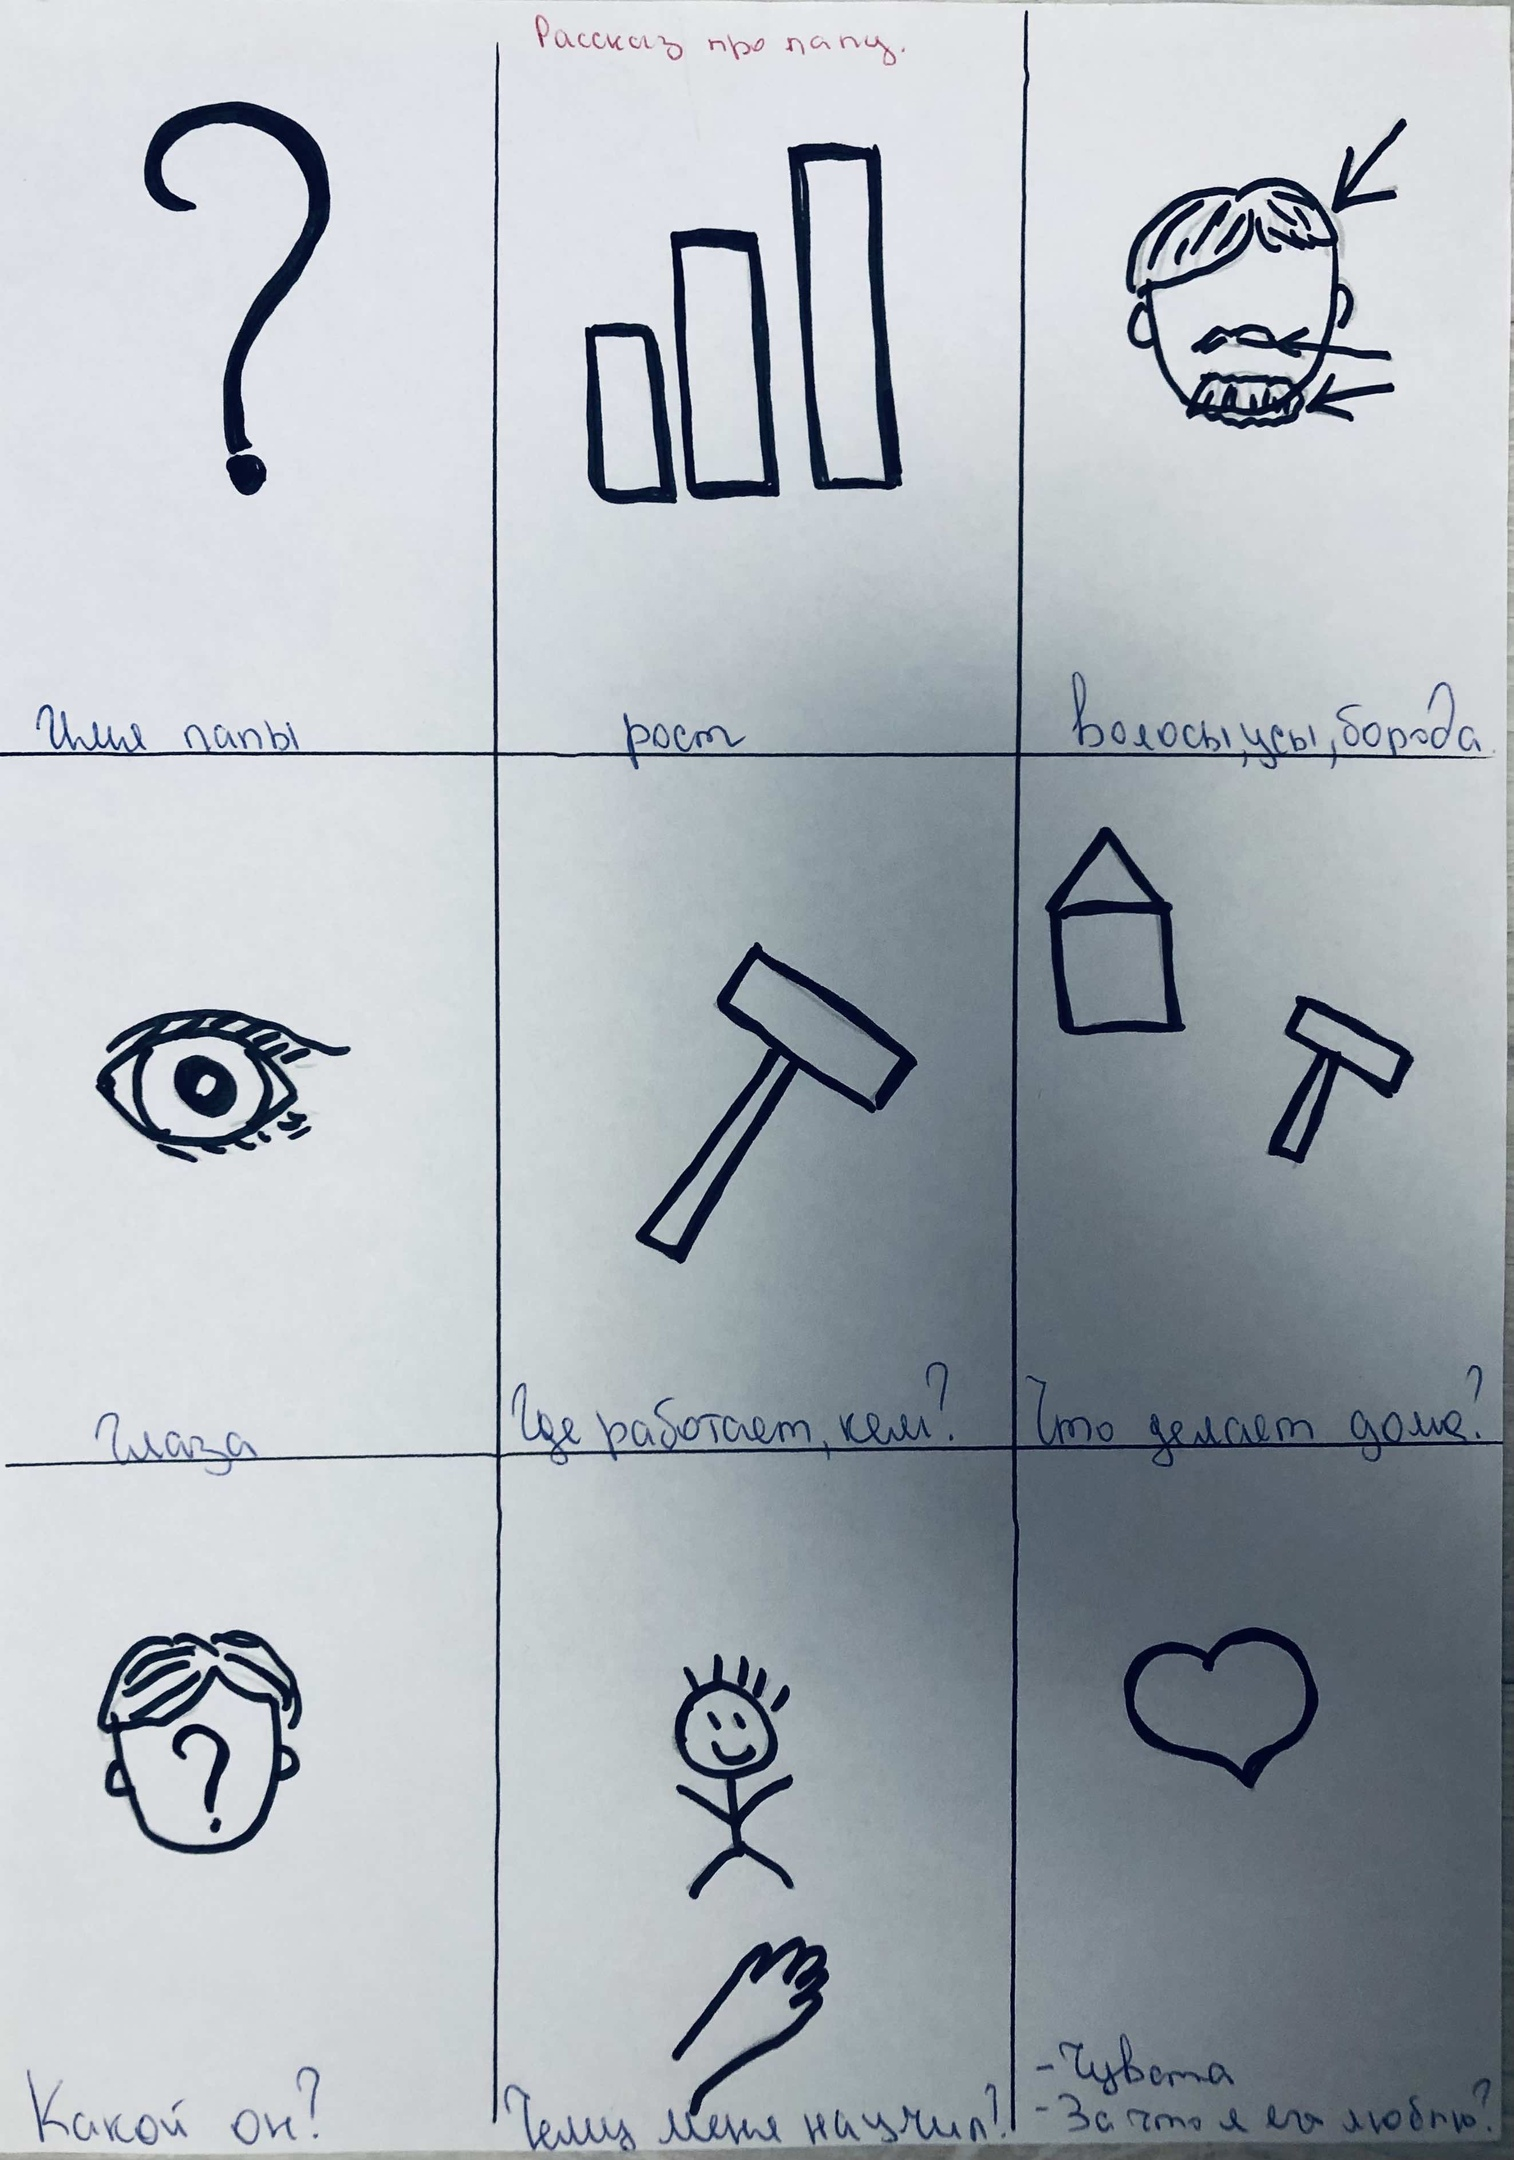 Рассказ про папу.
Имя папы
рост
Волосы, усы, борода.
Глаза
Где работает, кем?
Что делает дома?
Какой он?
Чему меня научил?
- Чувства
- За что я его люблю?